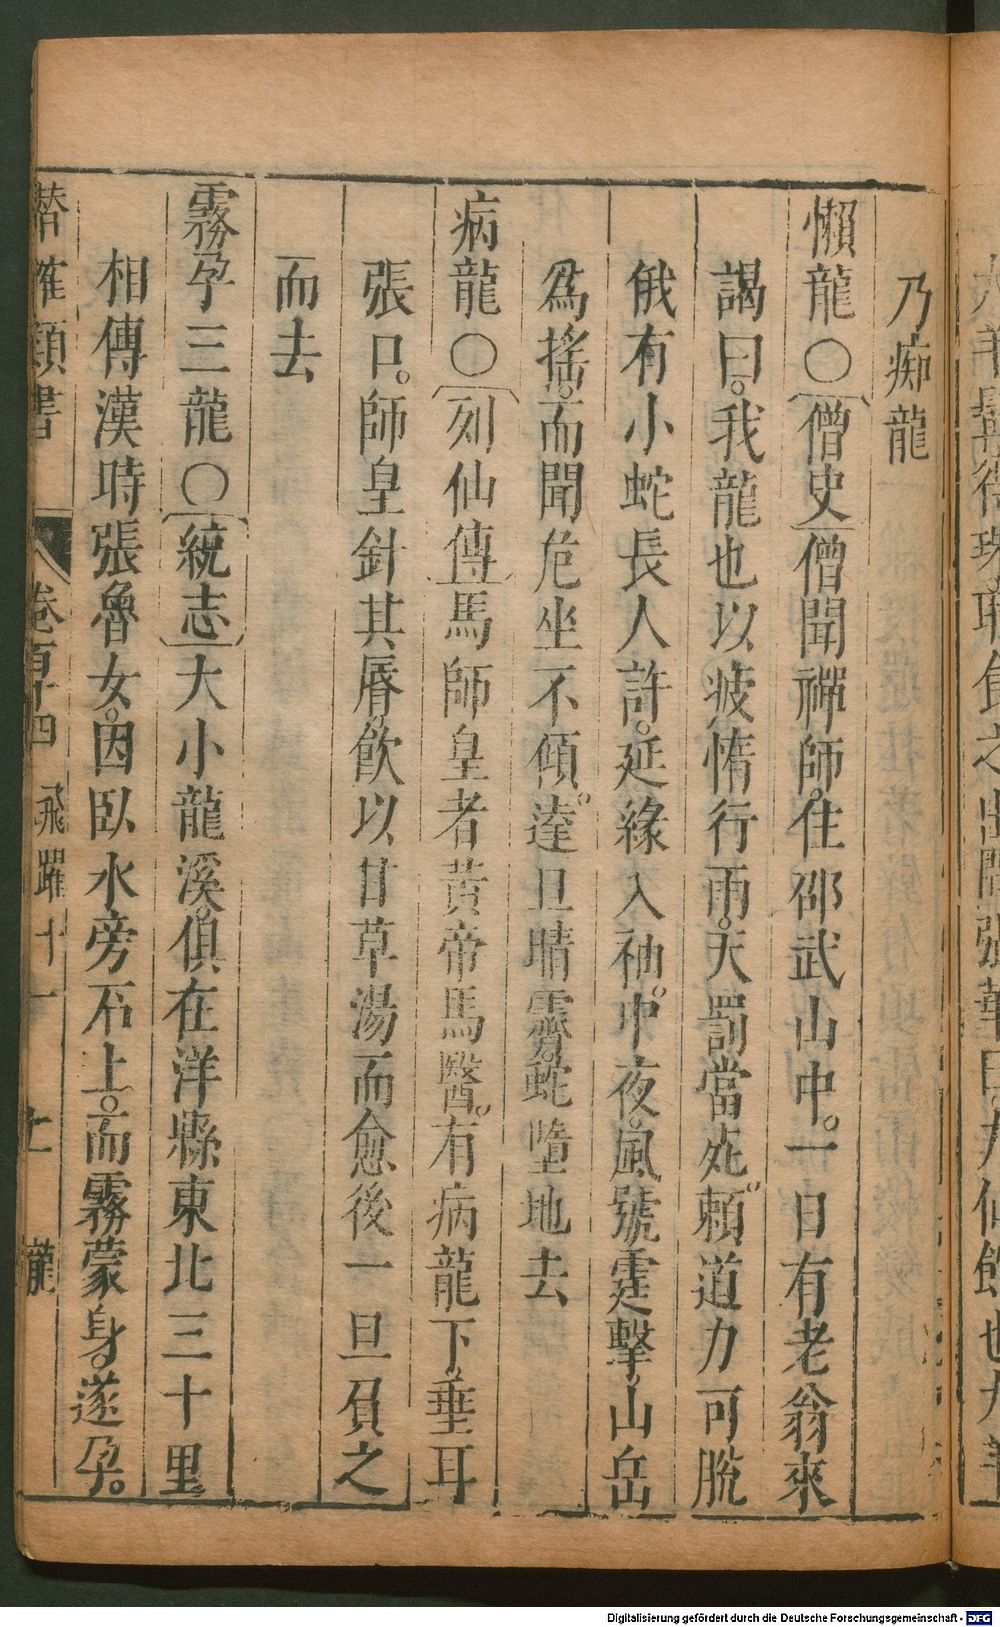 乃痴龍
懶龍○〔僧史〕僧聞禪師。住邵武山中。一日有老翁來
謁曰。我龍也以疲惰行雨。天罰當死。頼道力可脫
俄有小蛇長人許。延緣入袖中。中夜。風號霆擊。山岳
爲搖。而聞危坐不傾。逹旦晴霽。蛇墮地去
病龍○〔列仙傳〕馬師皇者黃帝馬醫。有病龍下。垂耳
張口。師皇針其脣。飲以甘草湯而愈後一旦負之
而去
霧孕三龍○〔統志〕大小龍溪。俱在洋縣東北三十里
相傳漢時張魯女。因臥水旁石上。而霧蒙身。遂孕。
潛確類書 卷百十四 飛躍十一 七 龍
Digitalisierung gefördert durch die Deutsche Forschungsgemeinschaft - DFG